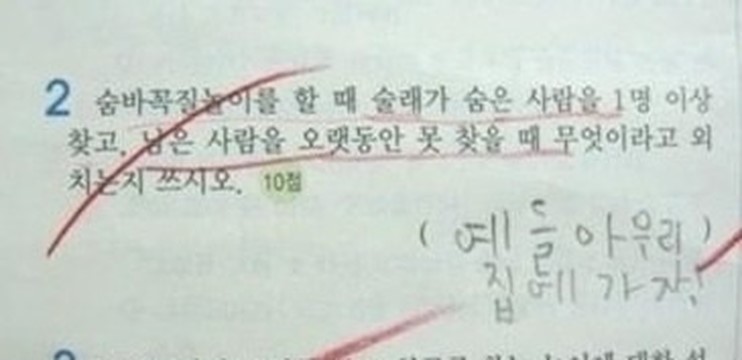 2 숨바꼭질놀이를 할 때 술래가 숨은 사람을 1명 이상
찾고, 남은 사람을 오랫동안 못 찾을 때 무엇이라고 외
치는지 쓰시오. 10점
( 예들아 우리 )
집에 가자!